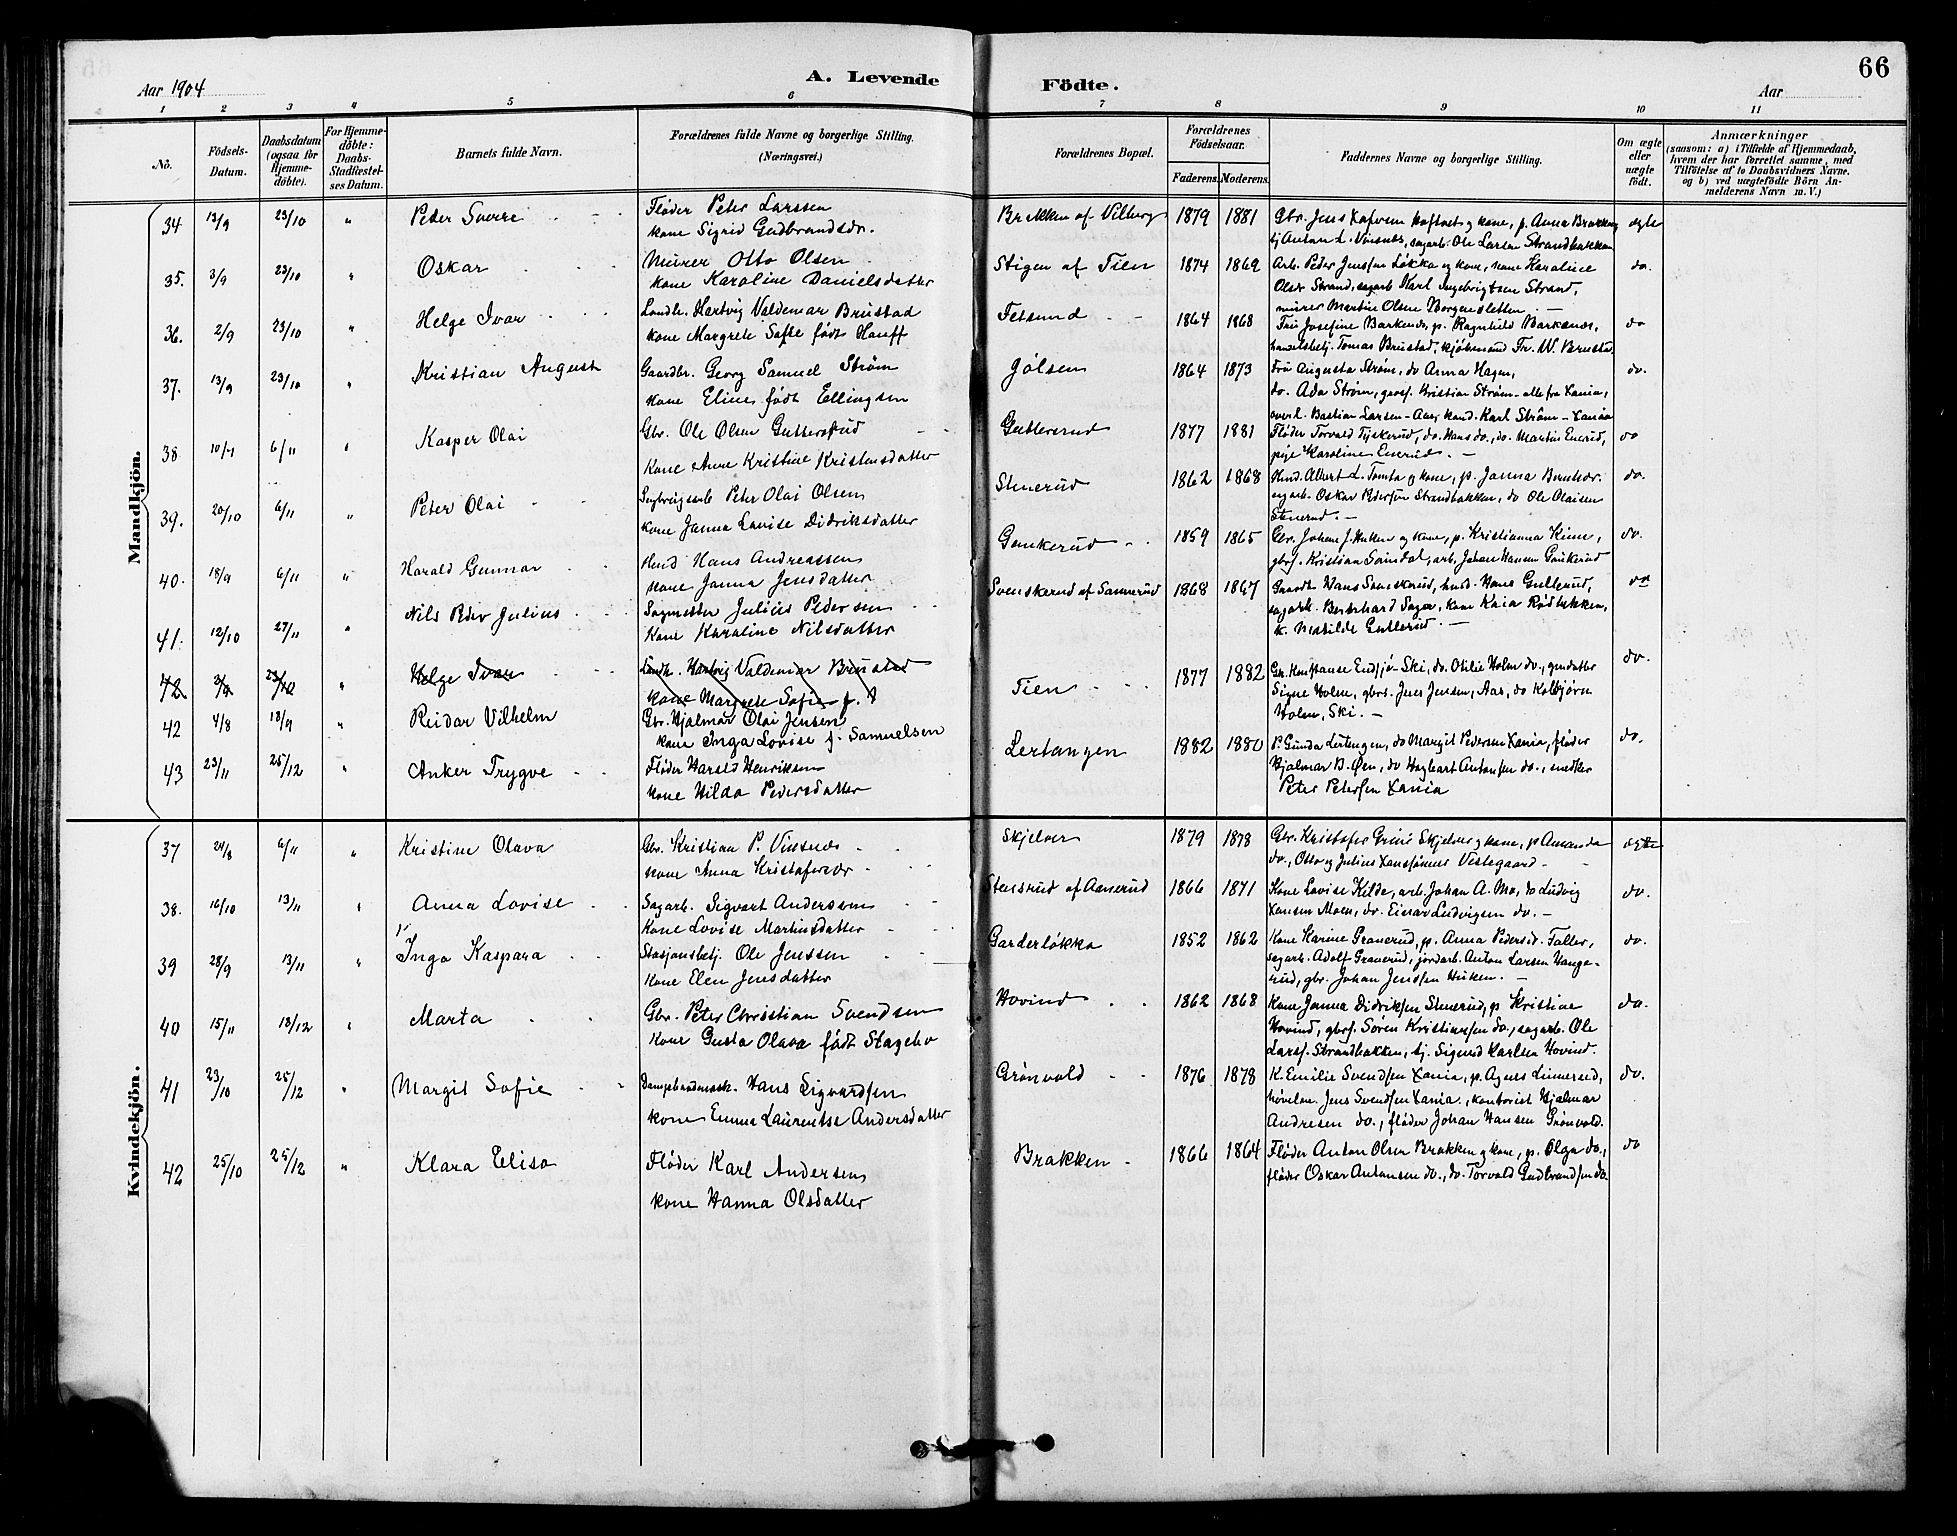 66
A. Levende Födte.
Aar 1904
Aar
1 2 3 4 5 6 7 8 9 10 11
No.
Födsels-Datum.
Daabsdatum (ogsaa for Hjemme-döbte).
For Hjemme-döbte: Daabs-Stadfæstel-ses Datum.
Barnets fulde Navn.
Forældrenes fulde Navne og borgerlige Stilling. (Næringsvei.)
Forældrenes Bopæl.
Forældrenes Födselsaar.
Faderens. Moderens.
Faddernes Navne og borgerlige Stilling.
Om ægte eller uægte födt.
Anmærkninger
(saasom: a) i Tilfælde af Hjemmedaab, hvem der har forrettet samme, med Tilföielse af to Daabsvidners Navne. og b) ved uægtefödte Börn An-melderens Navn m. V.)
Mandkjön.
34 13/9 23/10 " Peder Sverre Fløder Peter Larssen
kone Sigrid Gudbrandsdr.
Brakken af Vilberg 1879 1881 Gbr. Jens Hoftvet og kone, p. Anna Brakken ægte
tj Anton L. Vinsnes, sagarb. Ole Larsen Strandbakken
35. 3/9 23/10 " Oskar Murer Otto Olsen
kone Karoline Danielsdatter
Stigen af Tien 1874 1869 Arb. Peder Jenssen Løkka og kone, kone Karoline do.
Olsdr Strand, sagarb Karl Ingebrigtsen Strand,
murer Martin Olsen Borgensletten. —
36. 2/9 23/10 " Helge Ivar Landh. Hartvig Valdemar Brustad
kone Margrete Sofie født Hauff
Fetsund 1864 1868 Fru Josefine Barkenæs, p. Ragnhild Barkenæs, do
handelsbetj. Tomas Brustad, kjøbmand Fr. W. Brusta
37. 13/9 23/10 " Kristian August Gaardbr. Georg Samuel Strøm
kone Eline født Ellingsen
Jölsen 1864 1873 Fru Augusta Strøm, do Anna Hagen, do.
do. Ada Strøm, gross. Kristian Strøm - alle fra Xania,
overl. Bastian Larsen - Aas, kand. Karl Strøm - Xania
38 6/11 " Kasper Olai Gbr. Ole Olsen Gutterrud
Kone Anne Kristine Kristensdatter
Guttersrud 1877 1881 Fløder Torvald Tyskerud, do. Hans do., do. Martin Enerud, do
pige Karoline Enerud. —
39. 20/10 6/11 " Peter Olai Peter Olai Olsen
kone Janna Lovise Didriksdatter
Stenerud 1862 1868 Hmd. Albert L. Tomta og kone, p. Janna do.
sagarb. Oskar Pedersen Strandbakken, do Ole Olaisen
Stenerud. —
40. 18/9 6/11 " Harald Gunnar Hmd Hans Andreassen
Kone Janna Jensdatter
Gunkerud 1859 1865 Gbr. Johan J. Huken og kone, p. Kristianna do.
gbrs. Kristian Somdal, arb. Johan Hansen Gunkerud
41. 12/10 27/11 " Nils Peder Julius Sagmester Julius Pedersen
Kone Karoline Nilsdatter
Svenskerud af Sannerud 1868 1867 Gaardb Hans Svenskerud, hmd. Hans Gullerud, do
sagarb. Bernhard Sagen, kone Kaia Rødbekken,
k. Matilde Gullerud. —
42. 2/9 23/12 " Helge Ivar Landh. Hartvig Valdemar Brustad
kone Margrete Sofie f. H
42 4/8 18/9 " Reidar Vilhelm Gbr. Hjalmar Olai Jensen
kone Inga Lovise f. Samuelsen
Tien 1877 1882 Gk. Konstanse Endsjø - Ski, do. Otilie Holm do., grndatter do.
Signe Holm, gbrs. Jens Jensen, Aas, do Kolbjørn
Holm, Ski. —
43 23/11 25/12 " Anker Trygve Fløder Harald Henriksen
kone Hilda Pedersdatter
Lertangen 1882 1880 P. Gunda Lertangen, do Margit Pedersen Xania, fløder do.
Hjalmar B. Øen, do Hagbart Antonsen do., snedker
Peter Petersen Xania
Kvindekjön.
37 24/8 6/11 " Kristine Olava Gbr. Kristian P. Vinsnes
kone Anna Kristofersdr.
Skjelver 1879 1878 Gbr. Kristofer Skjelver og kone, p Amanda ægte
do., Otto og Julius Vestegaard
38. 16/10 13/11 " Anna Lovise Sagarb. Sigvart Andersen
Kone Lovise Martinsdatter
Stensrud af Aanerud 1866 1871 Kone Lovise Kilde, arb. Johan A. Mo, do Ludvig do.
Hansen Moen, do. Einar Ludvigsen do. —
39 28/9 13/11 " Inga Kaspara Stasjonsbetj. Ole Jenssen
Kone Elen Jensdatter
Garderløkka 1852 1862 Kone Karine Granerud, p. Anna Pedersd. Faller, do.
sagarb. Adolf Granerud, jordarb. Anton Larsen Hange-
rud, gbr. Johan Jenssen Huken. —
40 15/11 18/12 " Marta Gbr. Peter Christian Svendsen
Kone Gusta Olava født Stagebo
Hovind 1862 1868 Kone Janna Didriksen Stenerud, p Kristine do.
Hovind, gbrs. Søren Kristiansen do., sagarb. Ole
Larss. Strandbakken, tj. Sigurd Karlsen Hovind.
41 23/10 25/12 " Margit Sofie Hans Sigvardsen
kone Emma Laurentse Andersdatter
Grönvold 1876 1878 K. Emilie Svendsen Xania, p. Agnes Linnerud, do.
høvelm. Jens Svendsen Xania., kontorist Hjalmar
Andresen do., fløder Johan Hansen Grønvold.
42 25/10 25/12 " Klara Elisa Fløder Karl Andersen
kone Hanna Olsdatter
Brakken 1866 1864 Fløder Anton Olsen Brakken og kone, p. Olga do., do
fløder Oskar Antonsen do., do. Torvald Gudbrandsen do.